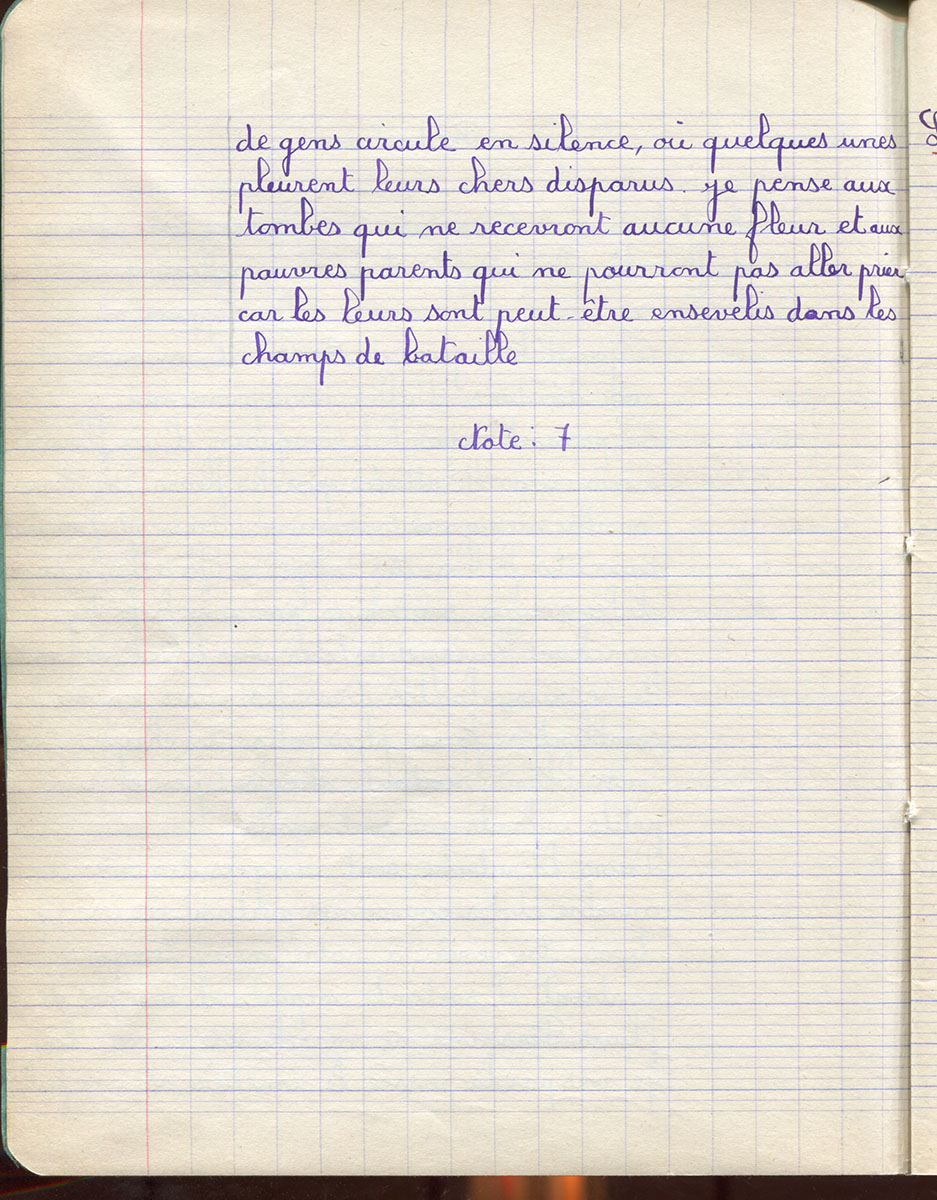 de gens circule en silence, où quelques unes
pleurent leurs chers disparus. Je pense aux
tombes qui ne recevront aucune fleur et aux
pauvres parents qui ne pourront pas aller prier
car les leurs sont peut-être ensevelis dans les
champs de bataille
Note : 7